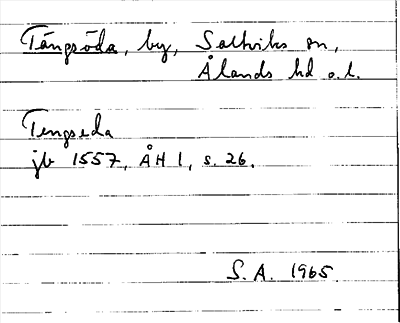 Tängsöda, by, Saltviks sn,
Ålands hd o. l.
Tengseda
jb 1557, ÅH 1, s. 26.
S. A. 1965.